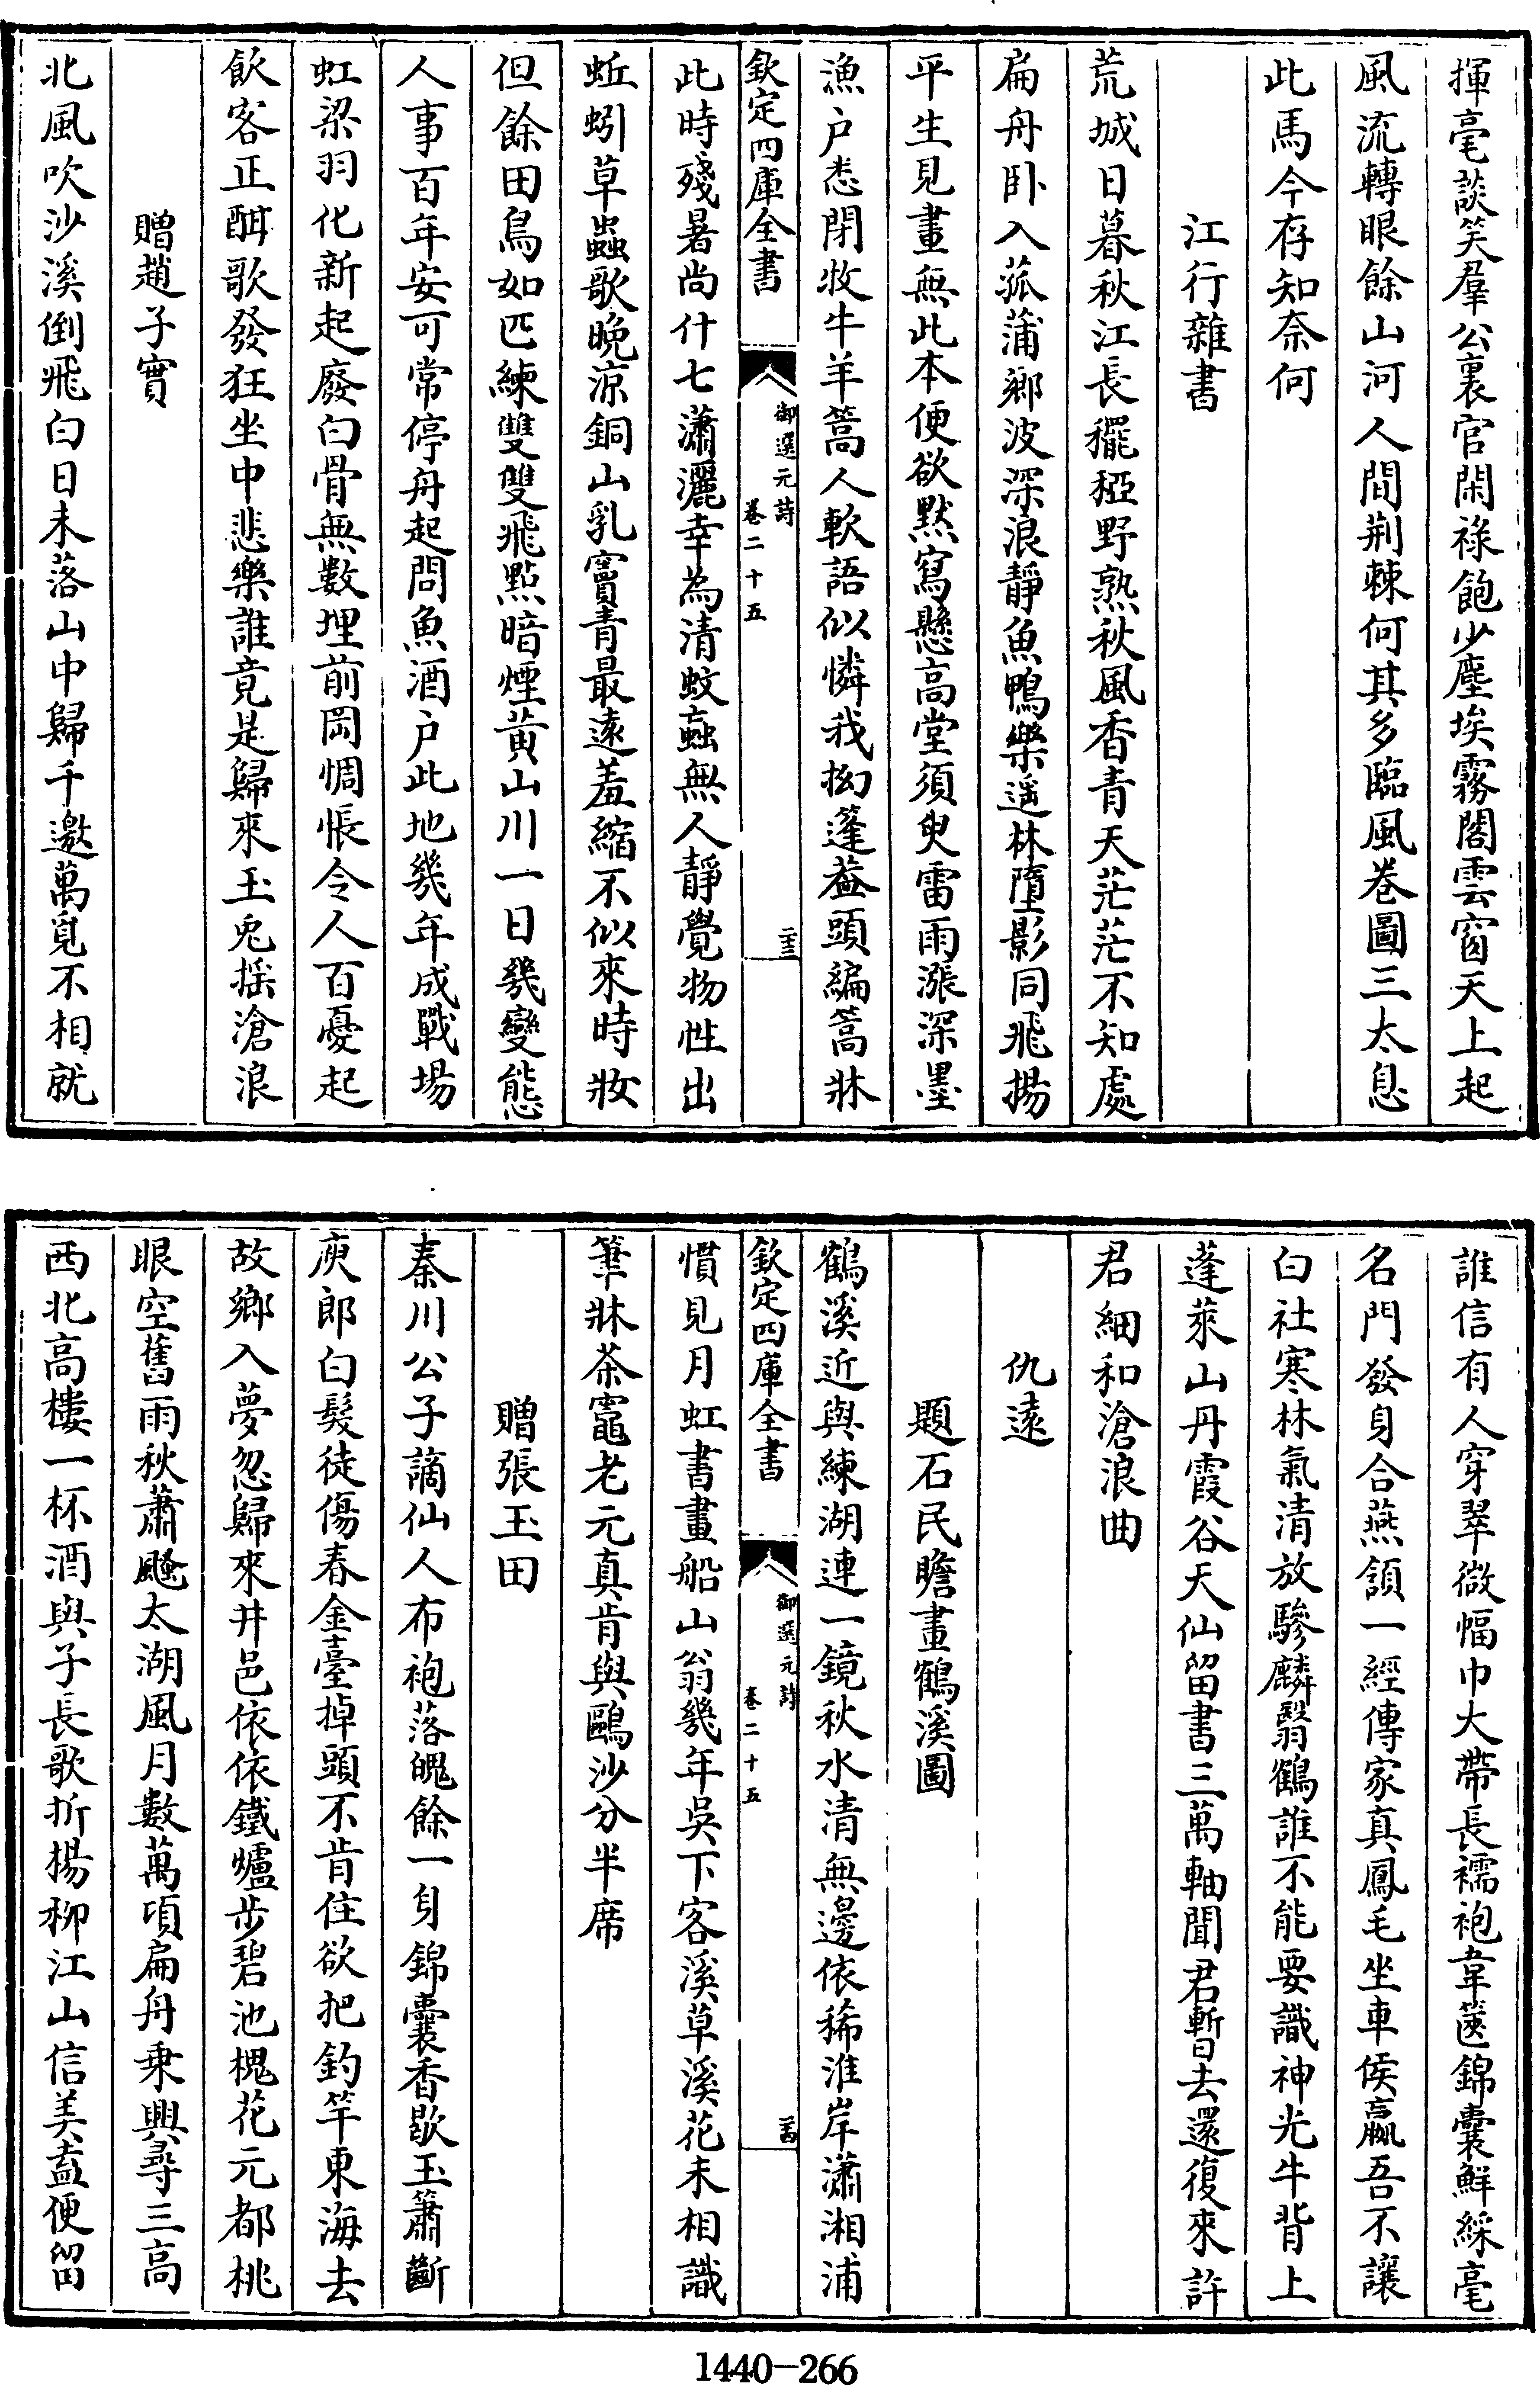 揮毫談笑羣公裏官閑祿飽少塵埃霧閣雲窗天上起
風流轉眼餘山河人間荆棘何其多臨風巻圖三太息
此馬今存知奈何
江行雜書
荒城日暮秋江長䆉稏野熟秋風香青天茫茫不知處
扁舟卧入菰蒲鄉波深浪靜魚鴨樂遥林墮影同飛揚
平生見畫無此本便欲黙寫懸高堂須臾雷雨漲深墨
漁户悉閉牧牛羊篙人軟語似憐我拗篷葢頭編篙牀
欽定四庫全書
御選元詩
卷二十五
二十三
此時殘暑尚什七瀟灑幸為清蚊蝱無人靜覺物性出
蚯蚓草蟲歌晩涼銅山乳竇青最遠羞縮不似來時妝
但餘田鳥如匹練雙雙飛點暗煙黄山川一日幾變態
人事百年安可常停舟起問魚酒户此地幾年成戰場
虹梁羽化新起廢白骨無數埋前岡惆悵令人百憂起
飲客正酣歌發狂坐中悲樂誰竟是歸來玉兎摇滄浪
贈趙子實
北風吹沙溪倒飛白日未落山中歸千邀萬覓不相就
誰信有人穿翠微幅巾大帶長襦袍韋篋錦囊鮮綵毫
名門發身合燕頷一經傳家真鳳毛坐車侯嬴吾不讓
白社寒林氣清放驂麟翳鶴誰不能要識神光牛背上
蓬萊山丹霞谷天仙留書三萬軸聞君暫去還復來許
君細和滄浪曲
仇遠
題石民瞻畫鶴溪圖
鶴溪近與練湖連一鏡秋水清無邊依稀淮岸瀟湘浦
欽定四庫全書
御選元詩
卷二十五
二十四
慣見月虹書畫船山翁幾年吳下客溪草溪花未相識
筆牀茶竈老元真肯與鷗沙分半席
贈張玉田
秦川公子謫仙人布袍落魄餘一身錦囊香歇玉簫斷
庾郎白髮徒傷春金臺掉頭不肯住欲把釣竿東海去
故鄉入夢忽歸來井邑依依鐵爐步碧池槐花元都桃
眼空舊雨秋蕭颾太湖風月數萬項扁舟乗興尋三高
西北高樓一杯酒與子長歌折楊栁江山信美盍便留
1440-266